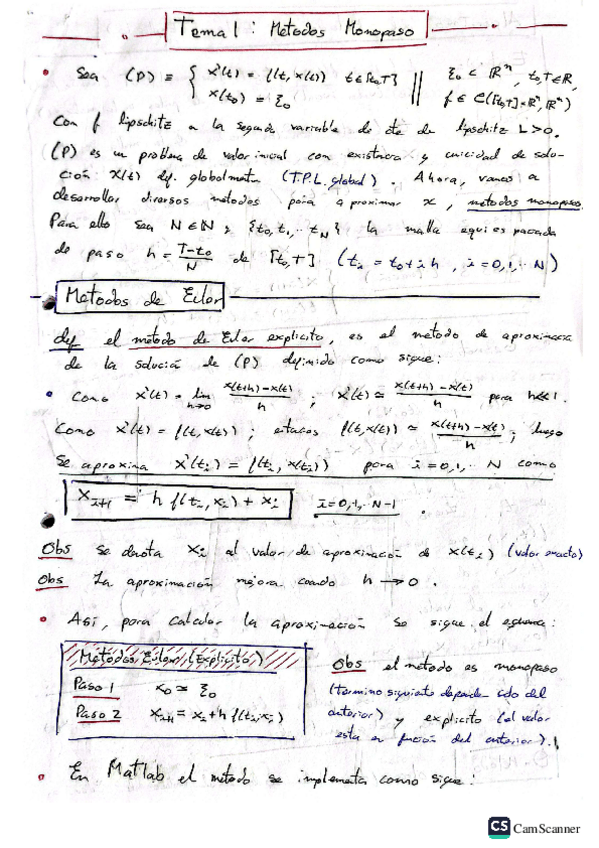 Tema 1 : Metodos Monopaso
• Sea (P) ≡ { x'(t) = f(t, x(t)) t∈[t₀,T] || ξ₀ ∈ ℝⁿ, t₀,T∈ℝ,
x(t₀) = ξ₀ f ∈ C([t₀,T]×ℝⁿ, ℝⁿ)
Con f lipschitz en la segunda variable de cte de lipschitz L>0.
(P) es un problema de valor inicial con existencia y unicidad de solu-
ción: x(t) def. globalmente (T.P.L. global). Ahora, vamos a
desarrollar diversos métodos para aproximar x, métodos monopaso.
Para ello sea N∈ℕ y {t₀,t₁,..t_N} la malla equiespaciada
de paso h = (T-t₀)/N de [t₀,T] (t_i = t₀+ih, i=0,1,..N)
Metodos de Euler
def el método de Euler explicito, es el metodo de aproximación
de la solución de (P) definido como sigue:
• Como x'(t) = lim h→0 (x(t+h)-x(t))/h ; x'(t) ≃ (x(t+h)-x(t))/h para h≪1.
Como x'(t) = f(t,x(t)) ; entonces f(t,x(t)) ≃ (x(t+h)-x(t))/h ; luego
Se aproxima x'(t_i) = f(t_i, x(t_i)) para i=0,1,.. N como
x_{i+1} = h f(t_i, x_i) + x_i i=0,1,.. N-1 .
Obs se denota x_i al valor de aproximación de x(t_i) (valor exacto)
Obs La aproximación mejora cuando h → 0 .
• Asi, para calcular la aproximación se sigue el esquema:
Metodos Euler (Explicito)
Paso 1 x₀ = ξ₀
Paso 2 x_{i+1} = x_i + h f(t_i,x_i)
Obs el método es monopaso
(termino siguiente depende sólo del
anterior) y explicito (el valor
esta en función del anterior).
• En Matlab el metodo se implementa como sigue:
CS CamScanner